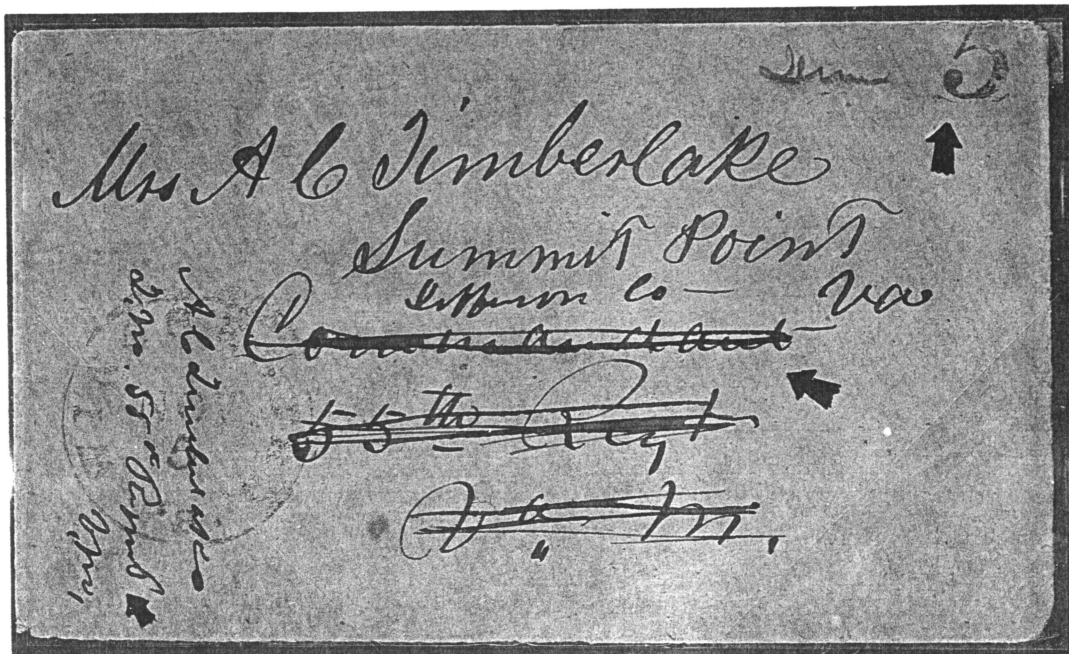 Due 5
Mrs A C Timberlake
Summit Point
Jefferson Co — Va
Commandant
55th Regt
Va. M.
A C Timberlake
55th Regmt